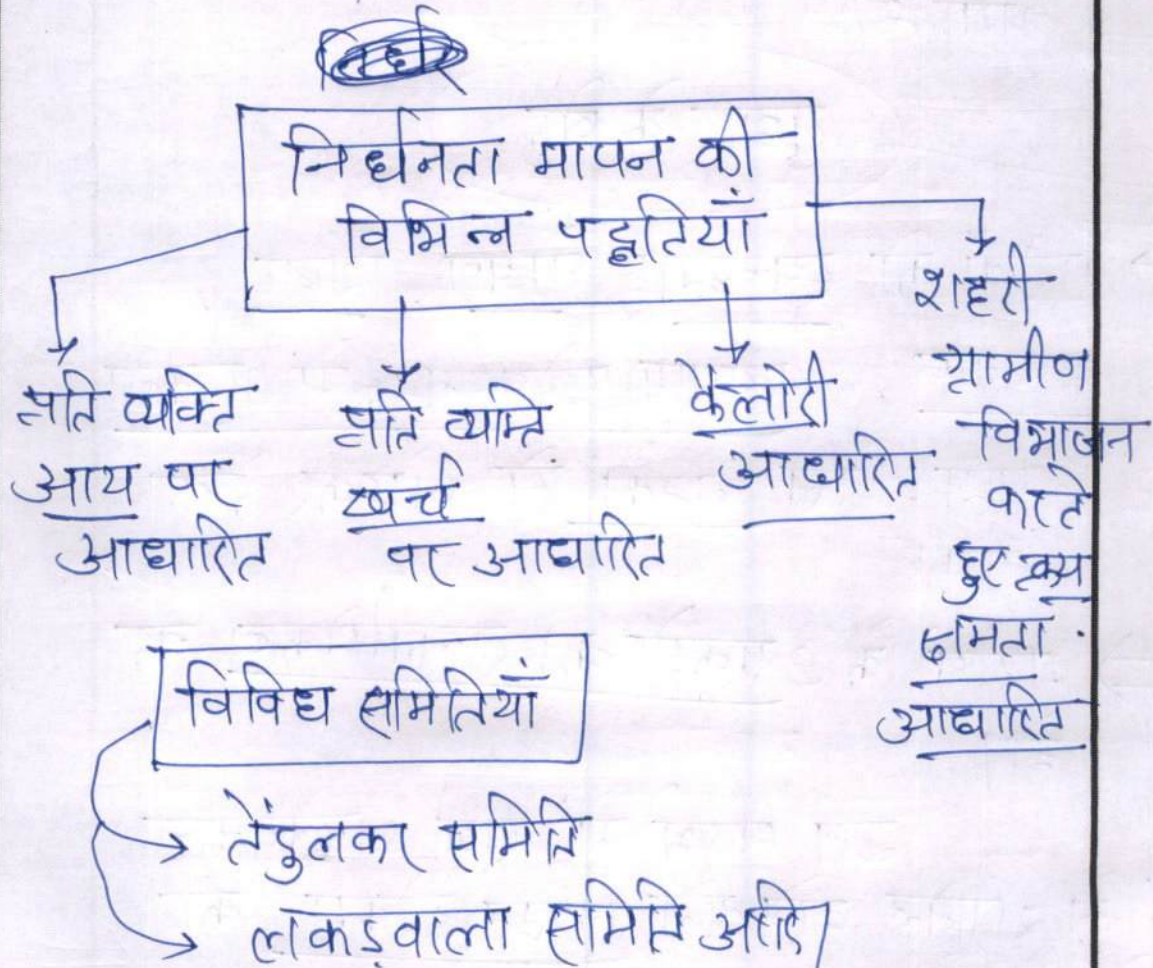 निर्धनता मापन की
विभिन्न पद्धतियाँ
प्रति व्यक्ति
आय पर
आधारित
प्रति व्यक्ति
खर्च
पर आधारित
कैलोरी
आधारित
शहरी
ग्रामीण
विभाजन
करते
हुए क्रय
क्षमता
आधारित
विविध समितियाँ
तेंदुलकर समिति
लकड़वाला समिति आदि।